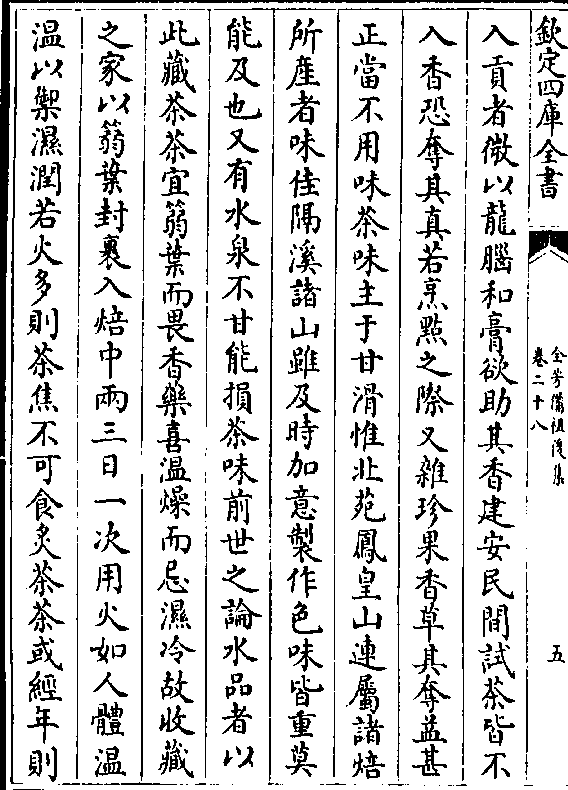 欽定四庫全書
全芳備祖後集
卷二十八
五
入貢者微以龍腦和膏欲助其香建安民間試茶皆不
入香恐奪其真若烹點之際又雜珍果香草其奪益甚
正當不用味茶味主于甘滑惟北苑鳳皇山連屬諸焙
所產者味佳隔溪諸山雖及時加意製作色味皆重莫
能及也又有水泉不甘能損茶味前世之論水品者以
此藏茶茶宜篛葉而畏香藥喜温燥而忌濕冷故收藏
之家以篛葉封裹入焙中兩三日一次用火如人體温
温以禦濕潤若火多則茶焦不可食炙茶茶或經年則